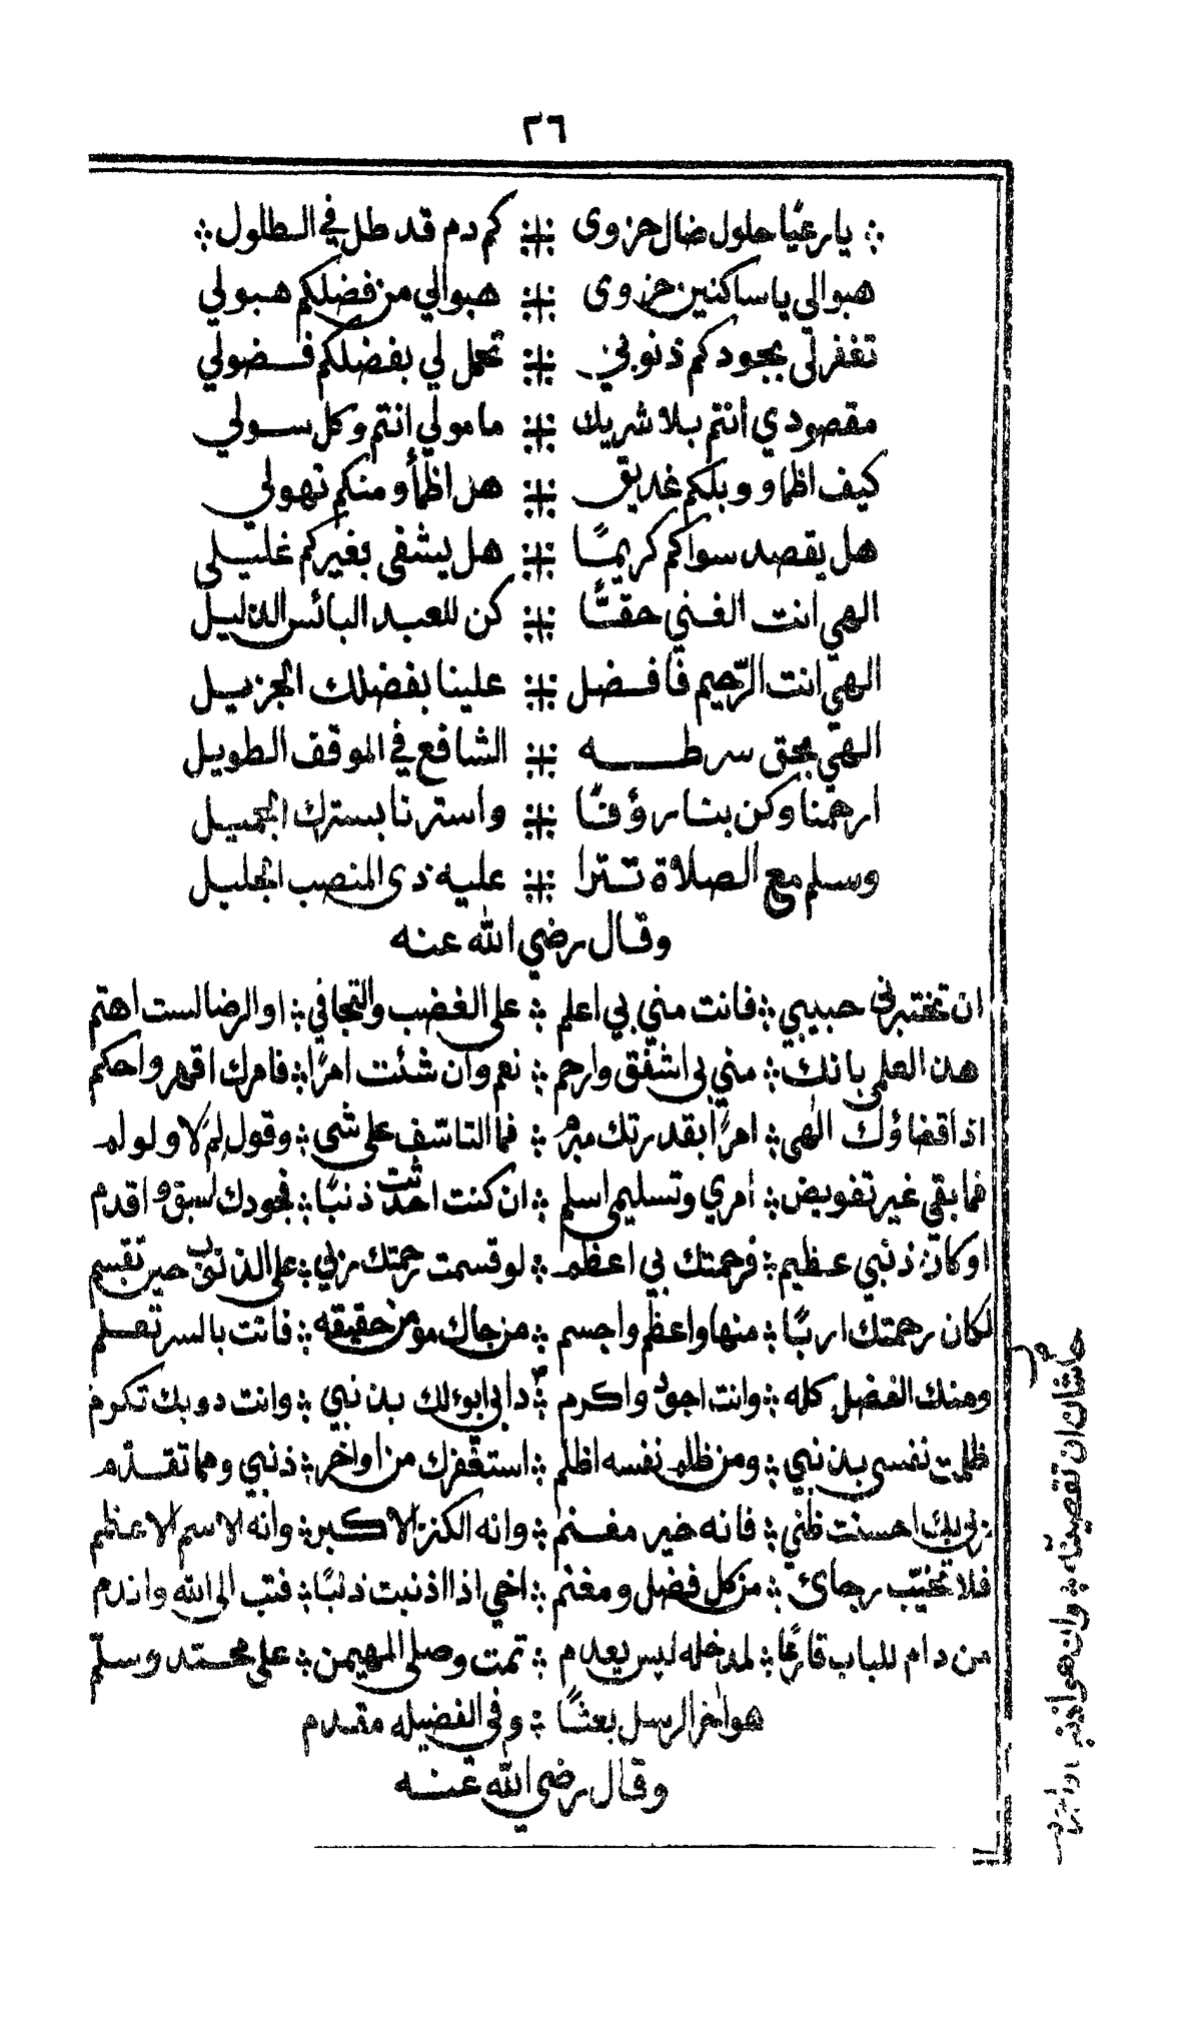 ٢٦
يا رعيًا حلول ضال حزوى ۞ كم دم قد طل في الطلول
هبوا لي يا ساكنين حزوى ۞ هبوا لي من فضلكم هبولي
تغفر لي بجودكم ذنوبي ۞ تحمل لي بفضلكم فضولي
مقصودي انتم بلا شريك ۞ مامولي انتم وكل سولي
كيف اظما ووبلكم غديق ۞ هل اظمأ ومنكم نهولي
هل يقصد سواكم كريمًا ۞ هل يشفى بغيركم غليلى
الهي انت الغني حقًّا ۞ كن للعبد البائس الذليل
الهي انت الرّحيم فافضل ۞ علينا بفضلك الجزيل
الهي بحق سر طه ۞ الشافع في الموقف الطويل
ارحمنا وكن بنا رؤفًا ۞ واسترنا بسترك الجميل
وسلم مع الصلاة تترا ۞ عليه ذى المنصب الجليل
وقال رضي الله عنه
ان تختبرني حبيبي ؞ فانت مني بي اعلم ؞ على الغضب والتجافي ؞ او الرضا لست اهتم
هذ العلمي بانك ؞ مني بى اشفق وارحم ؞ نعم وان شئت امرًا ؞ فامرك اقهر واحكم
اذا قضاؤك الهى ؞ امرًا بقدرتك مبرم ؞ فما التاسّف على شي ؞ وقول لِمْ لا ولو لم
فما بقي غير تفويض ؞ امري وتسليمي اسلم ؞ ان كنت احدثت ذنبًا ؞ فجودك اسبق واقدم
او كان ذنبي عظيم ؞ فرحمتك بي اعظم ؞ لو قسمت رحمتك ربي ؞ على الذنوب حين تقسم
لكان رحمتك اربًا ؞ منها واعظم واجسم ؞ من جاك مومن حقيقه ؞ فانت بالسر تعلم
ومنك الفضل كله ؞ وانت اجود واكرم ؞ دابي ابوء لك بذنبي ؞ وانت دوبك تكرم
ظلمت نفسي بذنبي ؞ ومن ظلم نفسه اظلم ؞ استغفرك من اواخر ؞ ذنبي ومما تقدّم
ربي بك احسنت ظني ؞ فانه خير مغنم ؞ وانه الكنز الاكبر ؞ وانه الاسم الاعظم
فلا تخيّب رجائ ؞ من كل فضل ومغنم ؞ اخي اذا اذنبت ذنبًا ؞ فتب الى الله واندم
من دام للباب قارعًا ؞ لمدخله ليس يعدم ؞ تمت وصلى المهيمن ؞ على محمّد وسلّم
هو اخر الرسل بعثًا ؞ وفى الفضيله مقدم
وقال رضي الله عنه
حاشا ان تقصيه ؞ وان هو اذنب